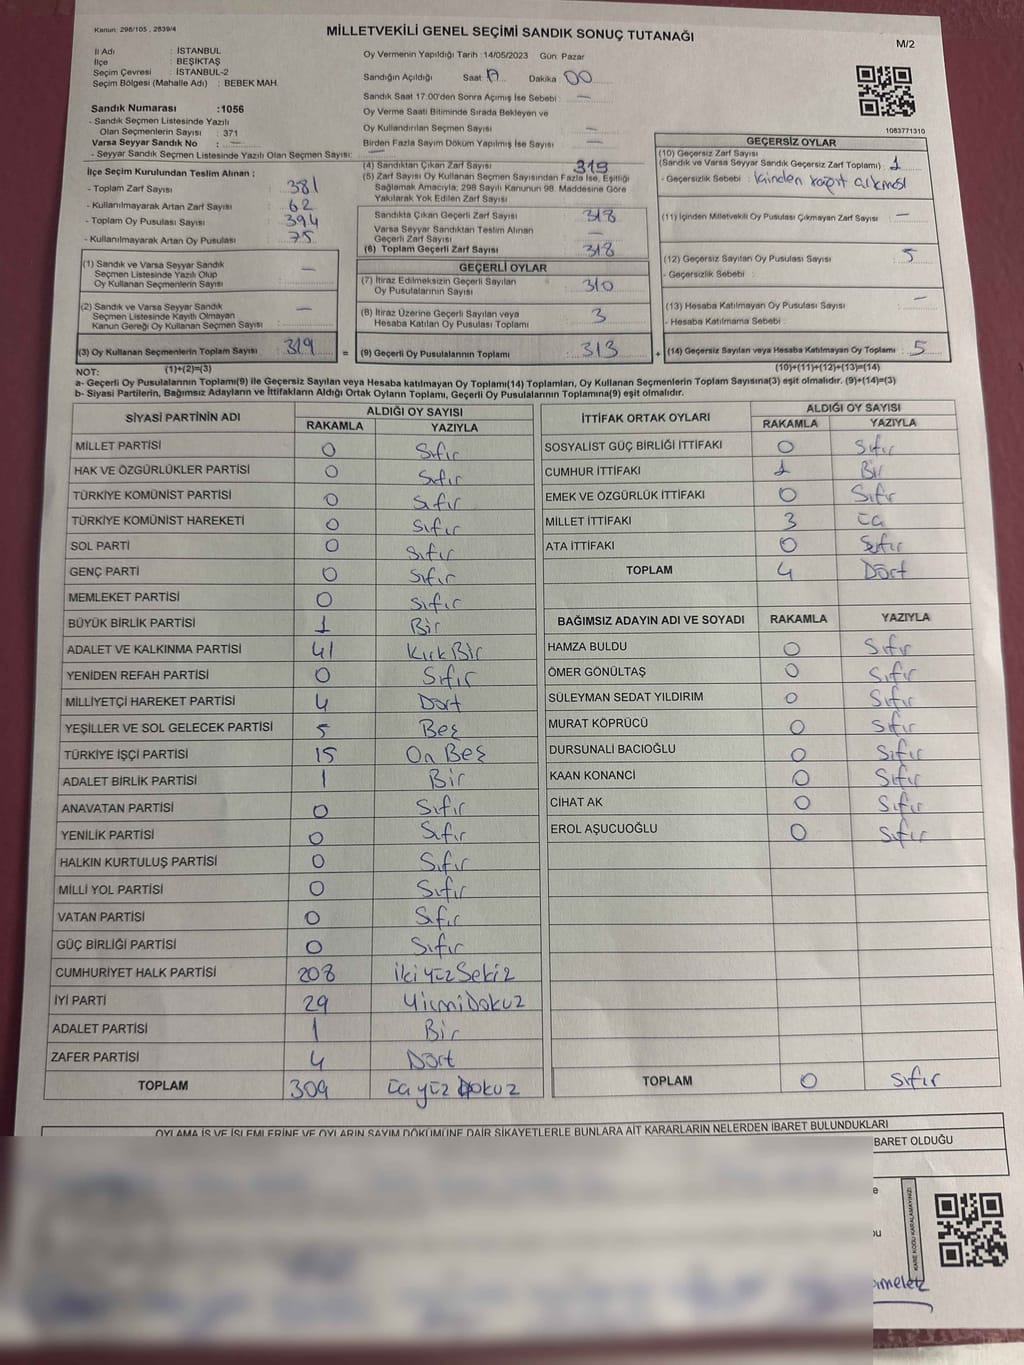 Kanun: 298/105 , 2839/4
MİLLETVEKİLİ GENEL SEÇİMİ SANDIK SONUÇ TUTANAĞI
M/2
İl Adı : İSTANBUL
İlçe : BEŞİKTAŞ
Seçim Çevresi : İSTANBUL-2
Seçim Bölgesi (Mahalle Adı) : BEBEK MAH.
Sandık Numarası :1056
- Sandık Seçmen Listesinde Yazılı
Olan Seçmenlerin Sayısı : 371
Varsa Seyyar Sandık No : —
- Seyyar Sandık Seçmen Listesinde Yazılı Olan Seçmen Sayısı: —
İlçe Seçim Kurulundan Teslim Alınan :
- Toplam Zarf Sayısı 381
- Kullanılmayarak Artan Zarf Sayısı 62
- Toplam Oy Pusulası Sayısı 394
- Kullanılmayarak Artan Oy Pusulası 75
(1) Sandık ve Varsa Seyyar Sandık
Seçmen Listesinde Yazılı Olup
Oy Kullanan Seçmenlerin Sayısı : —
(2) Sandık ve Varsa Seyyar Sandık
Seçmen Listesinde Kayıtlı Olmayan
Kanun Gereği Oy Kullanan Seçmen Sayısı : —
(3) Oy Kullanan Seçmenlerin Toplam Sayısı : 319
Oy Vermenin Yapıldığı Tarih :14/05/2023 Gün: Pazar
Sandığın Açıldığı Saat Dakika 00
Sandık Saat 17:00'den Sonra Açımış İse Sebebi : —
Oy Verme Saati Bitiminde Sırada Bekleyen ve
Oy Kullandırılan Seçmen Sayısı : —
Birden Fazla Sayım Döküm Yapılmış İse Sayısı : —
(4) Sandıktan Çıkan Zarf Sayısı : 319
(5) Zarf Sayısı Oy Kullanan Seçmen Sayısından Fazla İse, Eşitliği
Sağlamak Amacıyla; 298 Sayılı Kanunun 98. Maddesine Göre
Yakılarak Yok Edilen Zarf Sayısı :
Sandıkta Çıkan Geçerli Zarf Sayısı : 318
Varsa Seyyar Sandıktan Teslim Alınan
Geçerli Zarf Sayısı : —
(6) Toplam Geçerli Zarf Sayısı : 318
GEÇERLİ OYLAR
(7) İtiraz Edilmeksizin Geçerli Sayılan
Oy Pusulalarının Sayısı : 310
(8) İtiraz Üzerine Geçerli Sayılan veya
Hesaba Katılan Oy Pusulası Toplamı : 3
= (9) Geçerli Oy Pusulalarının Toplamı : 313
1083771310
GEÇERSİZ OYLAR
(10) Geçersiz Zarf Sayısı
(Sandık ve Varsa Seyyar Sandık Geçersiz Zarf Toplamı) : 1
- Geçersizlik Sebebi : çıkması
(11) İçinden Milletvekili Oy Pusulası Çıkmayan Zarf Sayısı : —
(12) Geçersiz Sayılan Oy Pusulası Sayısı : 5
- Geçersizlik Sebebi :
(13) Hesaba Katılmayan Oy Pusulası Sayısı : —
- Hesaba Katılmama Sebebi :
+ (14) Geçersiz Sayılan veya Hesaba Katılmayan Oy Toplamı : 5
NOT: (1)+(2)=(3) (10)+(11)+(12)+(13)=(14)
a- Geçerli Oy Pusulalarının Toplamı(9) ile Geçersiz Sayılan veya Hesaba katılmayan Oy Toplamı(14) Toplamları, Oy Kullanan Seçmenlerin Toplam Sayısına(3) eşit olmalıdır. (9)+(14)=(3)
b- Siyasi Partilerin, Bağımsız Adayların ve İttifakların Aldığı Ortak Oyların Toplamı, Geçerli Oy Pusulalarının Toplamına(9) eşit olmalıdır.
SİYASİ PARTİNİN ADI ALDIĞI OY SAYISI
RAKAMLA YAZIYLA
MİLLET PARTİSİ 0 Sıfır
HAK VE ÖZGÜRLÜKLER PARTİSİ 0 Sıfır
TÜRKİYE KOMÜNİST PARTİSİ 0 Sıfır
TÜRKİYE KOMÜNİST HAREKETİ 0 Sıfır
SOL PARTİ 0 Sıfır
GENÇ PARTİ 0 Sıfır
MEMLEKET PARTİSİ 0 Sıfır
BÜYÜK BİRLİK PARTİSİ 1 Bir
ADALET VE KALKINMA PARTİSİ 41 Kırk Bir
YENİDEN REFAH PARTİSİ 0 Sıfır
MİLLİYETÇİ HAREKET PARTİSİ 4 Dört
YEŞİLLER VE SOL GELECEK PARTİSİ 5 Beş
TÜRKİYE İŞÇİ PARTİSİ 15 On Beş
ADALET BİRLİK PARTİSİ 1 Bir
ANAVATAN PARTİSİ 0 Sıfır
YENİLİK PARTİSİ 0 Sıfır
HALKIN KURTULUŞ PARTİSİ 0 Sıfır
MİLLİ YOL PARTİSİ 0 Sıfır
VATAN PARTİSİ 0 Sıfır
GÜÇ BİRLİĞİ PARTİSİ 0 Sıfır
CUMHURİYET HALK PARTİSİ 208 İki yüz Sekiz
İYİ PARTİ 29 Yirmi Dokuz
ADALET PARTİSİ 1 Bir
ZAFER PARTİSİ 4 Dört
TOPLAM 309 Üç yüz Dokuz
İTTİFAK ORTAK OYLARI ALDIĞI OY SAYISI
RAKAMLA YAZIYLA
SOSYALİST GÜÇ BİRLİĞİ İTTİFAKI 0 Sıfır
CUMHUR İTTİFAKI 1 Bir
EMEK VE ÖZGÜRLÜK İTTİFAKI 0 Sıfır
MİLLET İTTİFAKI 3 Üç
ATA İTTİFAKI 0 Sıfır
TOPLAM 4 Dört
BAĞIMSIZ ADAYIN ADI VE SOYADI RAKAMLA YAZIYLA
HAMZA BULDU 0 Sıfır
ÖMER GÖNÜLTAŞ 0 Sıfır
SÜLEYMAN SEDAT YILDIRIM 0 Sıfır
MURAT KÖPRÜCÜ 0 Sıfır
DURSUNALİ BACIOĞLU 0 Sıfır
KAAN KONANCİ 0 Sıfır
CİHAT AK 0 Sıfır
EROL AŞUCUOĞLU 0 Sıfır
TOPLAM 0 Sıfır
OYLAMA İŞ VE İŞLEMLERİNE VE OYLARIN SAYIM DÖKÜMÜNE DAİR ŞİKAYETLERLE BUNLARA AİT KARARLARIN NELERDEN İBARET BULUNDUKLARI
BARET OLDUĞU
KARE KODU KARALAMAYINIZ!